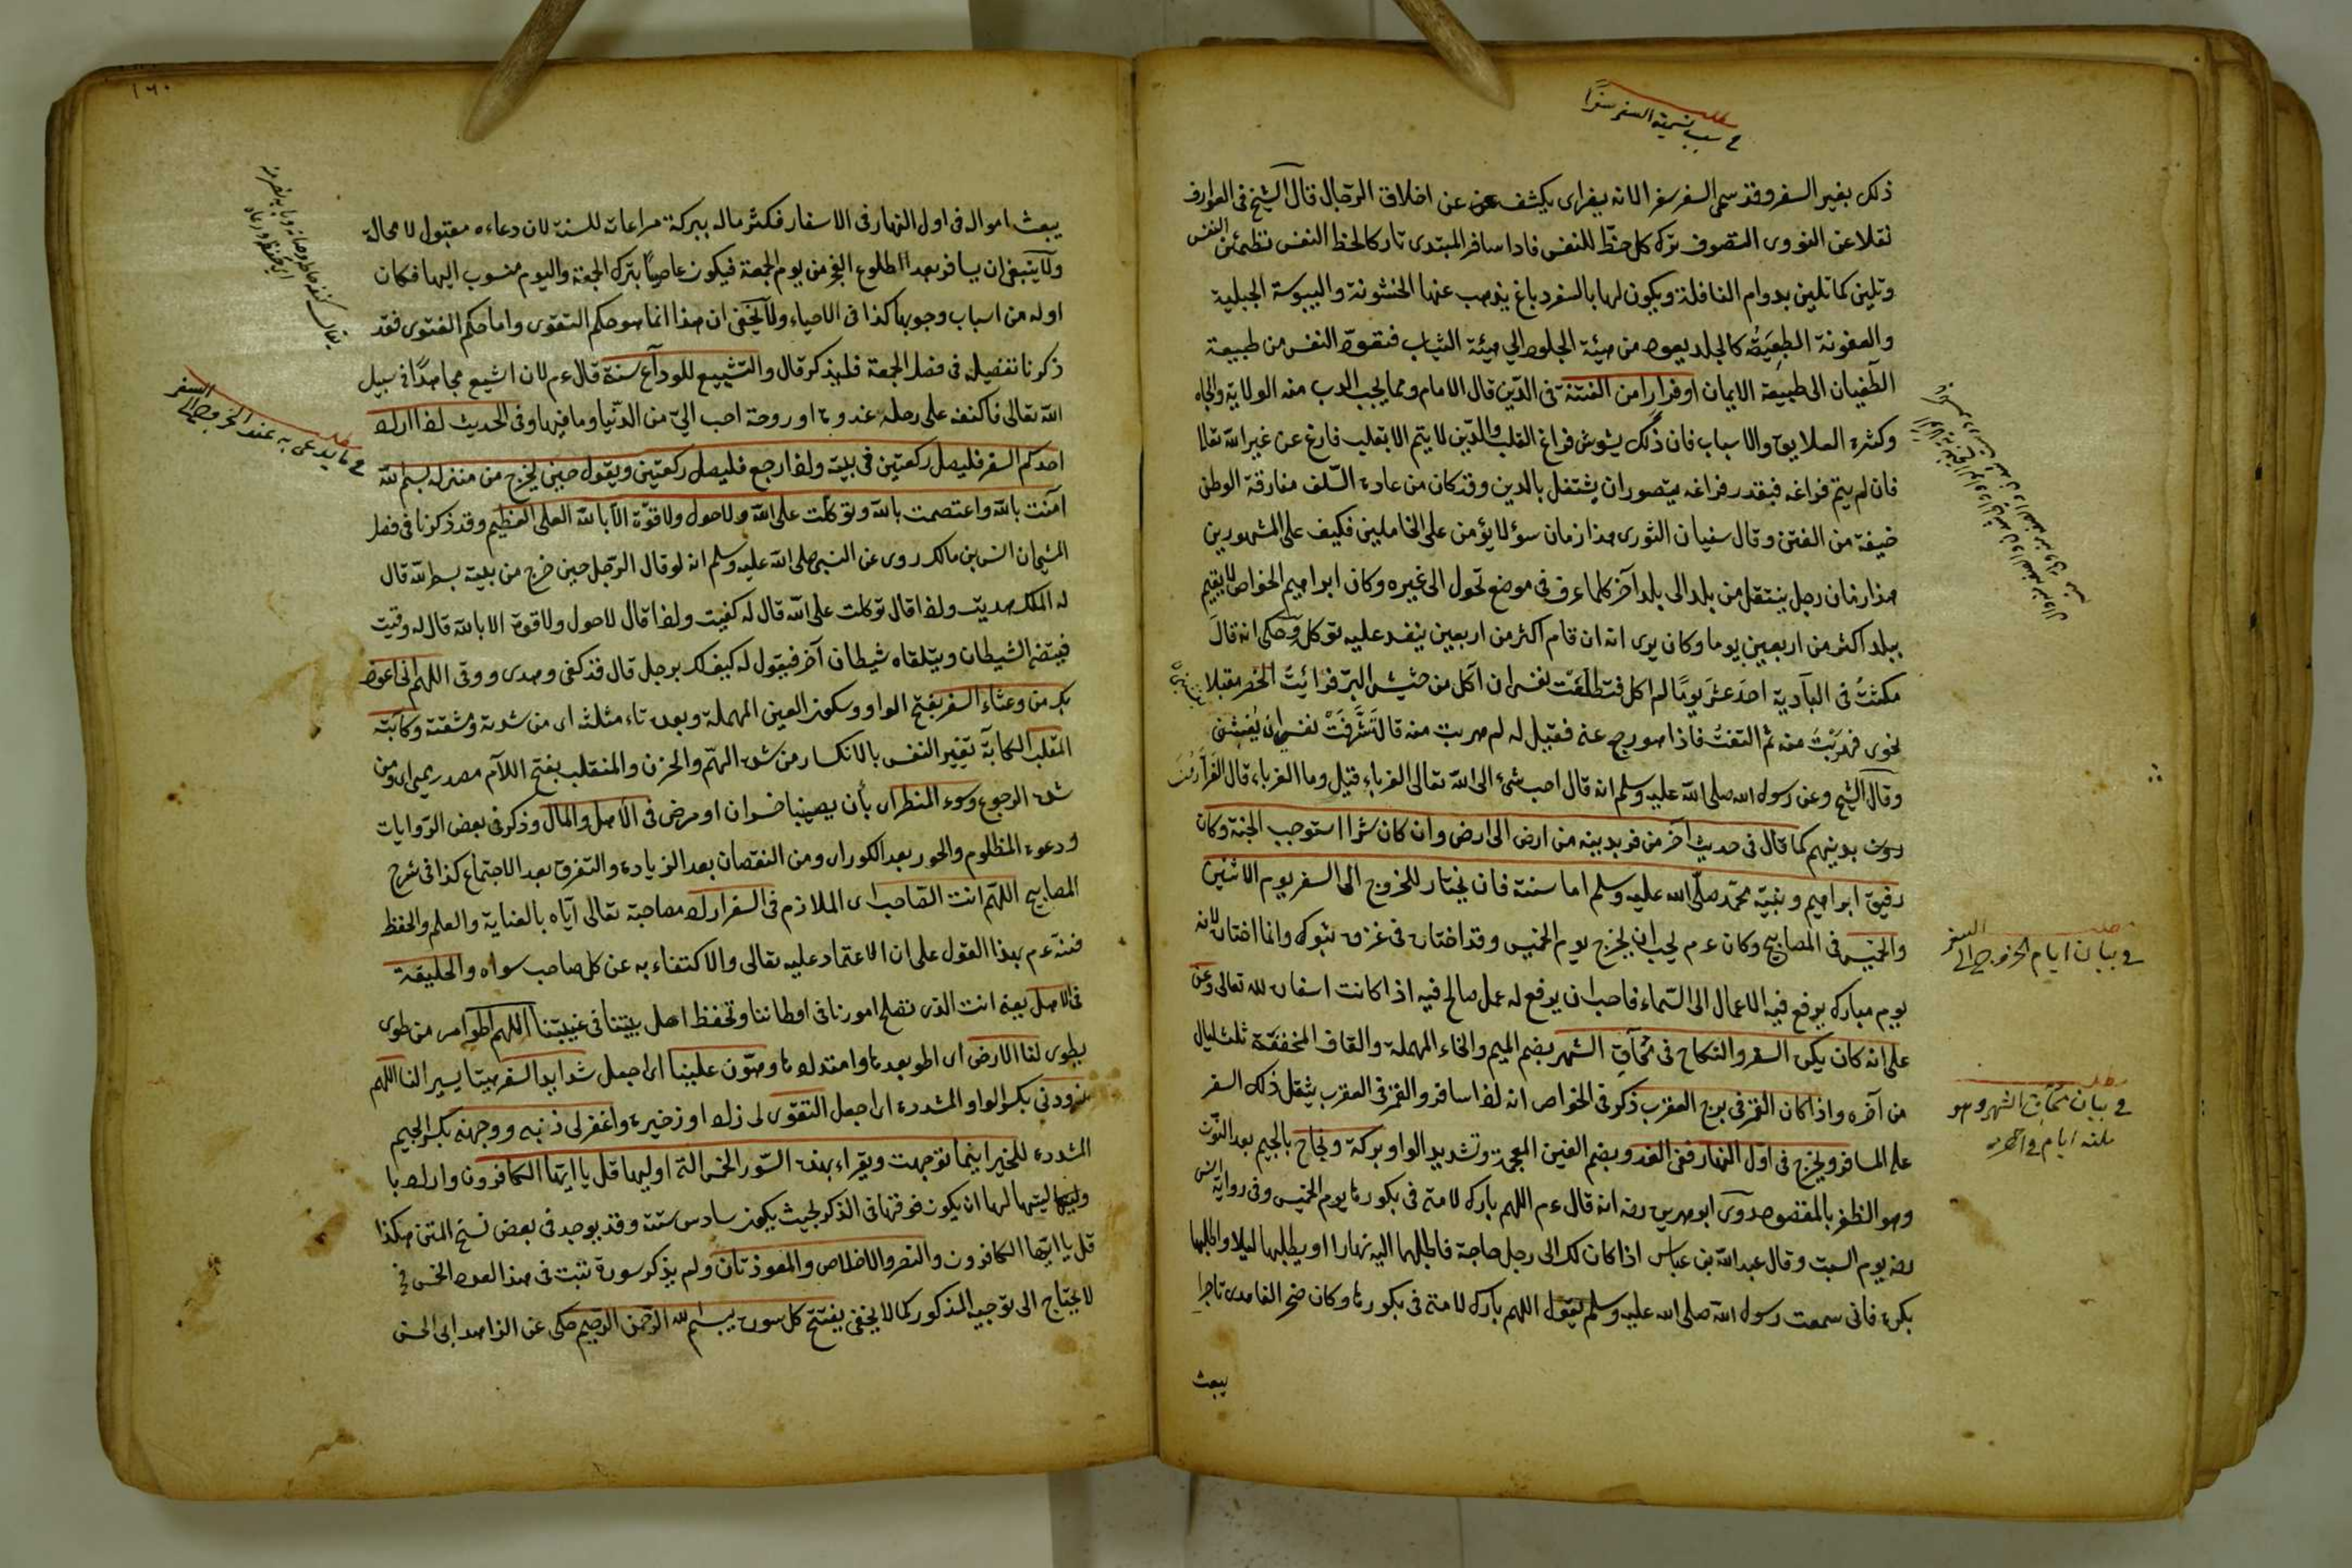 مطلب
في سبب تسمية السفر سفرا
ذلك بغير السفر وقد سمى السفر سفرا لانه يسفر اى يكشف عن اخلاق الرجال قال الشيخ فى العوارف
نقلا عن النووى التصوف ترك كل حظ للنفس فاذا سافر المبتدى تاركا لحظ النفس تطمئن النفس
وتلين كما تلين بدوام النافلة ويكون لها بالسفر دباغ يذهب عنها الخشونة واليبوسة الجبلية
والعفونة الطبيعية كالجلد يعود من هيئة الجلود الى هيئة الثياب فتعود النفس من طبيعة
الطغيان الى طبيعة الايمان او فرارا من الفتنة فى الدين قال الامام ومما يجب الهرب منه الولاية والجاه
وكثرة العلايق والاسباب فان ذلك يشوش فراغ القلب والدين لا يتم الا بقلب فارغ عن غير الله تعالى
فان لم يتم فراغه فبقدر فراغه يتصور ان يشتغل بالدين وقد كان من عادة السلف مفارقة الوطن
خيفة من الفتن وقال سفيان الثورى هذا زمان سوء لا يؤمن على الخاملين فكيف على المشهورين
هذا زمان رجل ينتقل من بلد الى بلد آخر كلما عرف فى موضع تحول الى غيره وكان ابراهيم الخواص لا يقيم
ببلد اكثر من اربعين يوما وكان يرى انه ان قام اكثر من اربعين يفسد عليه توكله وحكى انه قال
مكثت فى البادية احد عشر يوما لم آكل فتطلعت نفسى ان آكل من حشيش البر فرايت الخضر مقبلا
نحوى فهربت منه ثم التفت فاذا هو رجع عنى فقيل له لم هربت منه قال تشرفت نفسى ان يغيثنى
وقال الشيخ وعن رسول الله صلى الله عليه وسلم انه قال احب شئ الى الله تعالى الغرباء قيل وما الغرباء قال الفرارون
بدينهم كما قال فى حديث آخر من فر بدينه من ارض الى ارض وان كان شبرا استوجب الجنة وكان
رفيق ابراهيم ونبيه محمد صلى الله عليه وسلم اما سنته فان يختار للخروج الى السفر يوم الاثنين
والخميس فى المصابيح وكان ءم يحب ان يخرج يوم الخميس وقد اختاره فى غزوة تبوك وانما اختاره لانه
يوم مبارك يرفع فيه الاعمال الى السماء فاحب ان يرفع له عمل صالح فيه اذا كانت اسفاره لله تعالى وعن
على انه كان يكره السفر والنكاح فى محاق الشهر بضم الميم والحاء المهملة والقاف المخففة ثلث ليال
من آخره واذا كان القمر فى برج العقرب ذكر فى الخواص انه اذا سافر والقمر فى العقرب يثقل ذلك السفر
على المسافر ويخرج فى اول النهار ففى الغدو بضم الغين المعجمة وتشديد الواو بركة ونجاح بالجيم بعد النون
وهو الظفر بالمقصود روى ابو هريرة رضه انه قال ءم اللهم بارك لامتى فى بكورها يوم الخميس وفى رواية انس
رضه يوم السبت وقال عبد الله بن عباس اذا كان لك الى رجل حاجة فاطلبها اليه نهارا ولا تطلبها ليلا واطلبها
بكرة فانى سمعت رسول الله صلى الله عليه وسلم يقول اللهم بارك لامتى فى بكورها وكان صخر الغامدى تاجرا
يبعث
مطلب
في بيان ايام الخروج الى السفر
مطلب
في بيان محاق الشهر وهو
ثلثة ايام في آخره
١٦٠
يبعث امواله فى اول النهار فى الاسفار فكثر ماله ببركة مراعاته للسنة لان دعاءه مقبول لا محالة
ولا ينبغى ان يسافر بعد الطلوع الفجر من يوم الجمعة فيكون عاصيا بترك الجمعة واليوم منسوب اليها فكان
اوله من اسباب وجوبها كذا فى الاحياء ولا يخفى ان هذا انما هو حكم التقوى واما حكم الفتوى فقد
ذكرنا تفصيله فى فصل الجمعة فليذكر قال والتشييع للوداع سنة قال ءم لان اشيع مجاهدا فى سبيل
الله تعالى فاكنفه على رحله غدوة او روحة احب الى من الدنيا وما فيها وفى الحديث اذا اراد
احدكم السفر فليصل ركعتين فى بيته واذا رجع فليصل ركعتين ويقول حين يخرج من منزله بسم الله
آمنت بالله واعتصمت بالله وتوكلت على الله ولا حول ولا قوة الا بالله العلى العظيم وقد ذكرنا فى فصل
المشى ان انس بن مالك روى عن النبى صلى الله عليه وسلم انه لو قال الرجل حين خرج من بيته بسم الله قال
له الملك هديت واذا قال توكلت على الله قال له كفيت واذا قال لا حول ولا قوة الا بالله قال له وقيت
فيتنحى الشيطان ويتلقاه شيطان آخر فيقول له كيف لك برجل قال قد كفى وهدى ووقى اللهم انى اعوذ
بك من وعثاء السفر بفتح الواو وسكون العين المهملة وبعده ثاء مثلثة اى من شدته ومشقته وكآبة
المنقلب الكآبة تغير النفس بالانكسار من شدة الهم والحزن والمنقلب بفتح اللام مصدر ميمى اى ومن
شدة الرجوع وسوء المنظر اى بأن يصيبنا خسران او مرض فى الاهل والمال وذكر فى بعض الروايات
ودعوة المظلوم والحور بعد الكور اى ومن النقصان بعد الزيادة والتفرق بعد الاجتماع كذا فى شرح
المصابيح اللهم انت الصاحب اى الملازم فى السفر اراد مصاحبة تعالى اياه بالعناية والعلم والحفظ
فنبه ءم بهذا القول على ان الاعتماد عليه تعالى والاكتفاء به عن كل صاحب سواه والخليفة
فى الاهل يعنى انت الذى تصلح امورنا فى اوطاننا وتحفظ اهل بيتنا فى غيبتنا اللهم اطو امر من طوى
يطوى لنا الارض اى اطو بعدها وامتدادها وهون علينا اى اجعل شدايد السفر هينا يسيرا لنا اللهم
زودنى بكسر الواو المشددة اى اجعل التقوى لى زادا وذخيرة واغفر لى ذنبى ووجهنى بكسر الجيم
المشددة للخير اينما توجهت ويقراء بهذه السور الخمس التى اوليها قل يا ايها الكافرون واراد با
وليتها لها ان يكون فوقها فى الذكر بحيث يكون سادس ستة وقد يوجد فى بعض نسخ المتن هكذا
قل يا ايها الكافرون والنصر والاخلاص والمعوذتان ولم يذكر سورة تبت فى هذا العدد الخمس فح
لا يحتاج الى توجيه المذكور كما لا يخفى يفتتح كل سورة ببسم الله الرحمن الرحيم حكى عن الزاهد ابى الحسن
مطلب
في ما يدعى به عند الخروج الى السفر